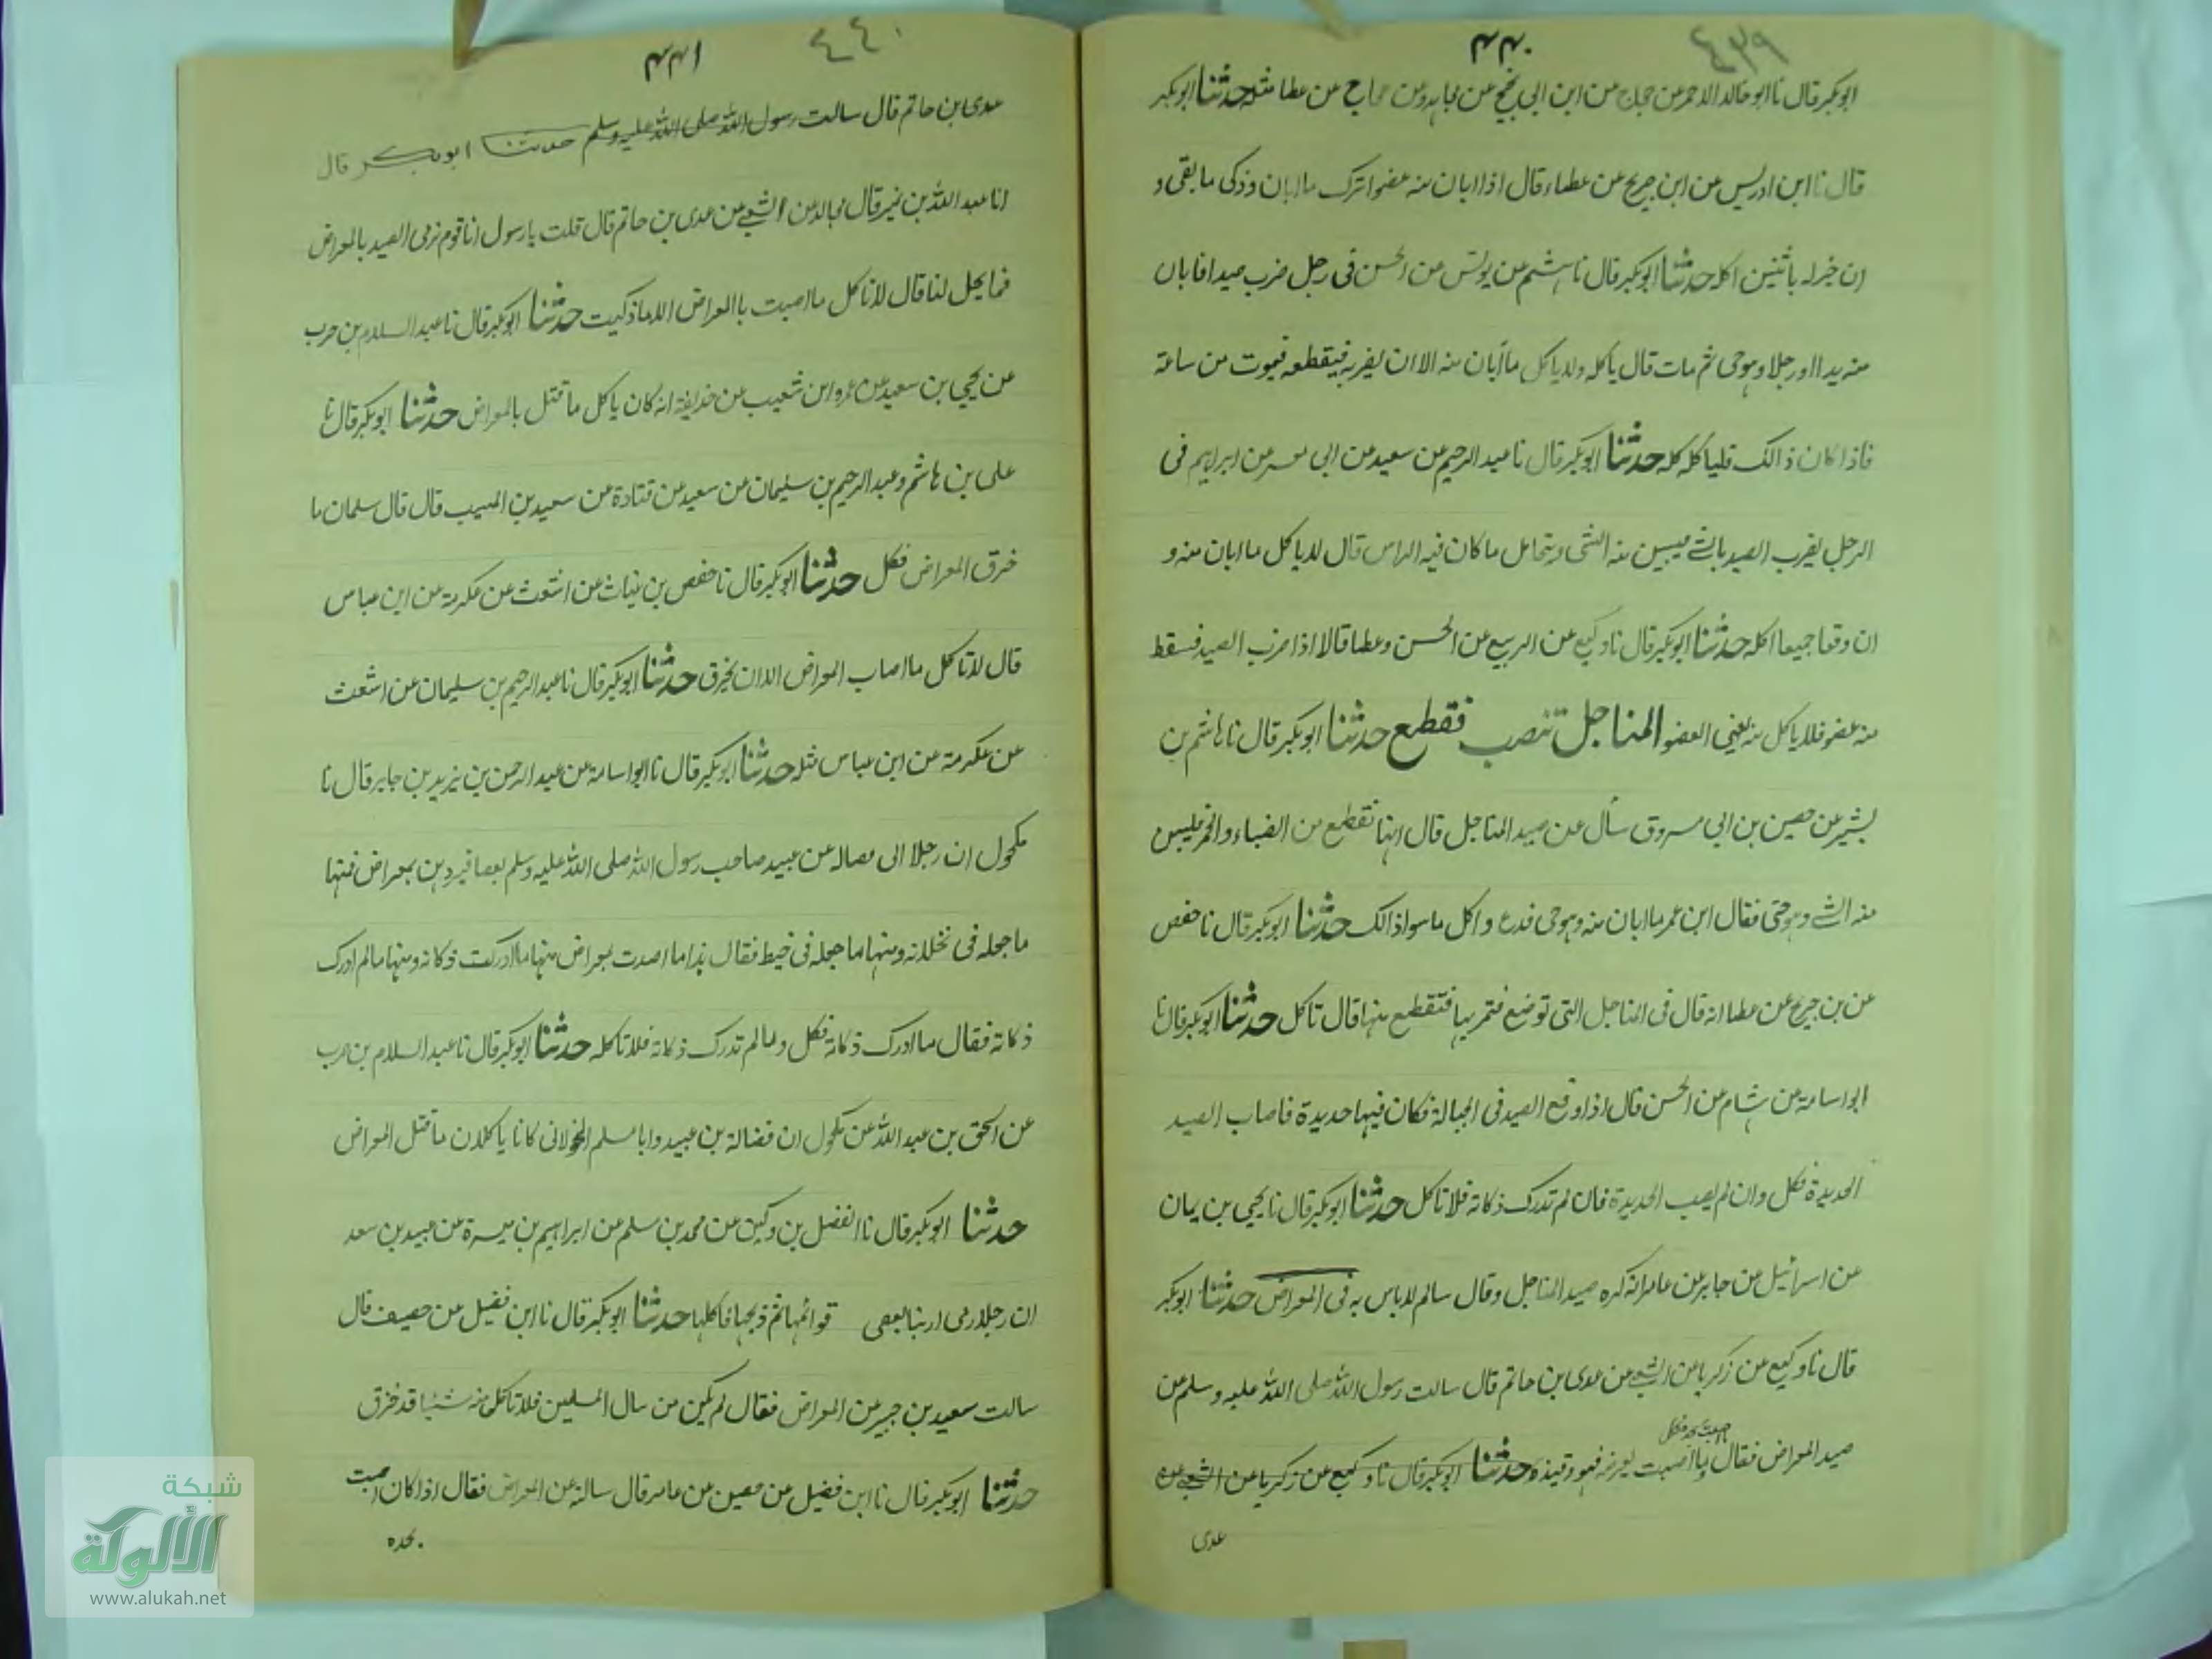 ٤٣٩
۴۴۰
ابوبكر قال نا ابو خالد الاحمر عن حجاج عن ابن ابي نجيح عن مجاهد وعن حجاج عن عطا مثله حدثنا ابوبكر
قال نا ابن ادريس عن ابن جريج عن عطاء قال اذا ابان منه عضوا ترك ما ابان وذكى ما بقى و
ان خزله باثنين اكله حدثنا ابوبكر قال نا هشيم عن يونس عن الحسن في رجل ضرب صيدا فابان
منه يدا او رجلا وهو حى ثم مات قال ياكله ولا ياكل ما أبان منه الا ان يضربه فيقطعه فيموت من ساعة
فاذا كان ذالك فلياكله كله حدثنا ابوبكر قال نا عبد الرحيم عن سعيد عن ابي معشر عن ابراهيم في
الرجل يضرب الصيد بالشے فيبين منه الشى ويتحامل ما كان فيه الراس قال لا ياكل ما ابان منه و
ان وقعا جميعا اكله حدثنا ابوبكر قال نا وكيع عن الربيع عن الحسن وعطا قالا اذا ضرب الصيد فسقط
منه عضو فلا ياكل منه يعني العضو المناجل تنصب فقطع حدثنا ابوبكر قال نا هاشم بن
بشير عن حصين بن ابي مسروق سأل عن صيد المناجل قال انها تقطع من الضباء والحمر فيبين
منه الشے وهو حتى فقال ابن عمر ما ابان منه وهو حى فدع واكل ما سوا ذالك حدثنا ابوبكر قال نا حفص
عن بن جريج عن عطا انه قال في المناجل التى توضع فتمر بها فتقطع منها قال تاكل حدثنا ابوبكر قال نا
ابو اسامة عن هشام عن الحسن قال اذا وقع الصيد في الحبالة فكان فيها حديدة فاصاب الصيد
الحديدة فكل وان لم يصب الحديدة فان لم تدرك ذكاته فلا تاكل حدثنا ابوبكر قال نا يحيى بن يمان
عن اسرائيل عن جابر عن عامر انه كره صيد المناجل وقال سالم لا باس به في المعراض حدثنا ابوبكر
قال نا وكيع عن زكريا عن الشعبے عن عدى بن حاتم قال سالت رسول الله صلى الله عليه وسلم عن
صيد المعراض فقال ما اصبت بحده فكل وما اصبت بعرضه فهو وقيذه حدثنا ابوبكر قال نا وكيع عن زكريا عن الشعبے عن
عدى
٤٤٠
۴۴۱
عدى بن حاتم قال سالت رسول الله صلى الله عليه وسلم حدثنا ابوبكر قال
انا عبد الله بن نمير قال مجالد عن الشعبے عن عدى بن حاتم قال قلت يا رسول انا قوم نرمى الصيد بالمعراض
فما يحل لنا قال لا تاكل ما اصبت باالمعراض الا ما ذكيت حدثنا ابوبكر قال نا عبد السلام بن حرب
عن يحيي بن سعيد عن عمرو ابن شعيب عن حذيفة انه كان ياكل ما قتل بالمعراض حدثنا ابوبكر قال نا
على بن هاشم وعبد الرحيم بن سليمان عن سعيد عن قتادة عن سعيد بن المسيب قال قال سلمان ما
خرق المعراض فكل حدثنا ابوبكر قال نا حفص بن غياث عن اشعث عن عكرمة عن ابن عباس
قال لا تاكل ما اصاب المعراض الا ان يخرق حدثنا ابوبكر قال نا عبد الرحيم بن سليمان عن اشعث
عن عكرمة عن ابن عباس مثله حدثنا ابوبكر قال نا ابو اسامة عن عبد الرحمن بن يزيد بن جابر قال نا
مكحول ان رجلا اتى فصاله عن عبيد صاحب رسول الله صلى الله عليه وسلم بعصافير دبن بمعراض فمنها
ما جعله في مخلاته ومنها ما جعله في خيط فقال هذا ما اصدت بمعراض منها ما ادركت ذكاته ومنها مالم ادرك
ذكاته فقال ما ادرك ذكاته فكل وما لم تدرك ذكاته فلا تاكله حدثنا ابوبكر قال نا عبد السلام بن حرب
عن اسحق بن عبد الله عن مكحول ان فضالة بن عبيد وابا مسلم الخولاني كانا ياكلان ما قتل المعراض
حدثنا ابوبكر قال نا الفضل بن دكين عن محمد بن مسلم عن ابراهيم بن ميسرة عن عبيد بن سعد
ان رجلا رمى ارنبا بعصى قوائمها ثم ذبحها فاكلها حدثنا ابوبكر قال نا ابن فضيل عن حصيف قال
سالت سعيد بن جبير عن المعراض فقال لم يكن من سال المسلمين فلا تاكل منه شيئا قد خزق
حدثنا ابوبكر قال نا ابن فضيل عن حصين عن عامر قال سالته عن المعراض فقال اذا كان اصبت
بحده
شبكة
الألوكة
www.alukah.net